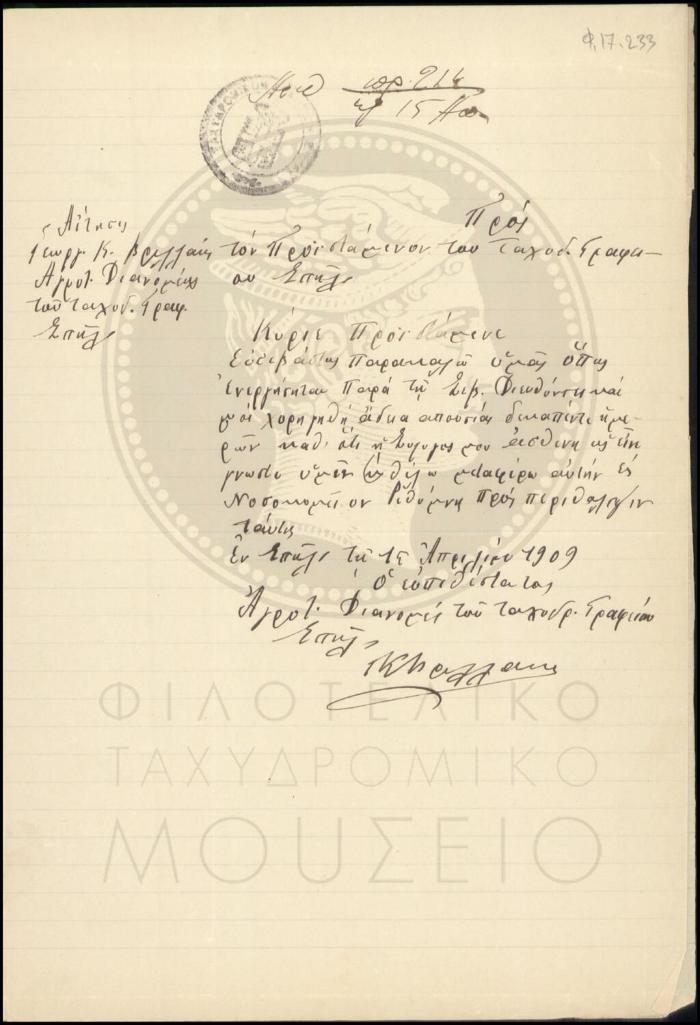 Φ.17.233
Αριθ. πρ. 214
15
ΤΑΧΥΔΡΟΜΙΚΟΝ
Αἴτησις
Γεωργ. Κ.
Ἀγροτ. Διανομέως
τοῦ ταχυδ. Γραφ.
Σπήλι
Πρός
τόν Προϊστάμενον του ταχυδ. Γραφεί-
ου Σπήλι
Κύριε Προϊστάμενε
Εὐσεβάστως Παρακαλῶ ὑμᾶς ὅπως
ἐνεργήσητε Παρά τῇ Σεβ. Διευθύνσει καί
μοί χορηγηθῇ ἄδεια απουσίας δεκαπέντε ἡμε-
ρῶν καθ' ὅτι ἡ Σύζυγος μου ἀσθενη
γνωστό ὑμῖν θέλω μεταφέρω αυτήν εἰς
Νοσοκομεῖον Ρεθύμνη πρός περίθαλψιν
ταύτης
Ἐν Σπήλι τῇ 15 Ἀπριλίου 1909
Ὁ εὐπειθέστατος
Ἀγροτ. Διανομεύς τοῦ ταχυδρ. Γραφείου
Σπήλι
ΦΙΛΟΤΕΛΙΚΟ
ΤΑΧΥΔΡΟΜΙΚΟ
ΜΟΥΣΕΙΟ